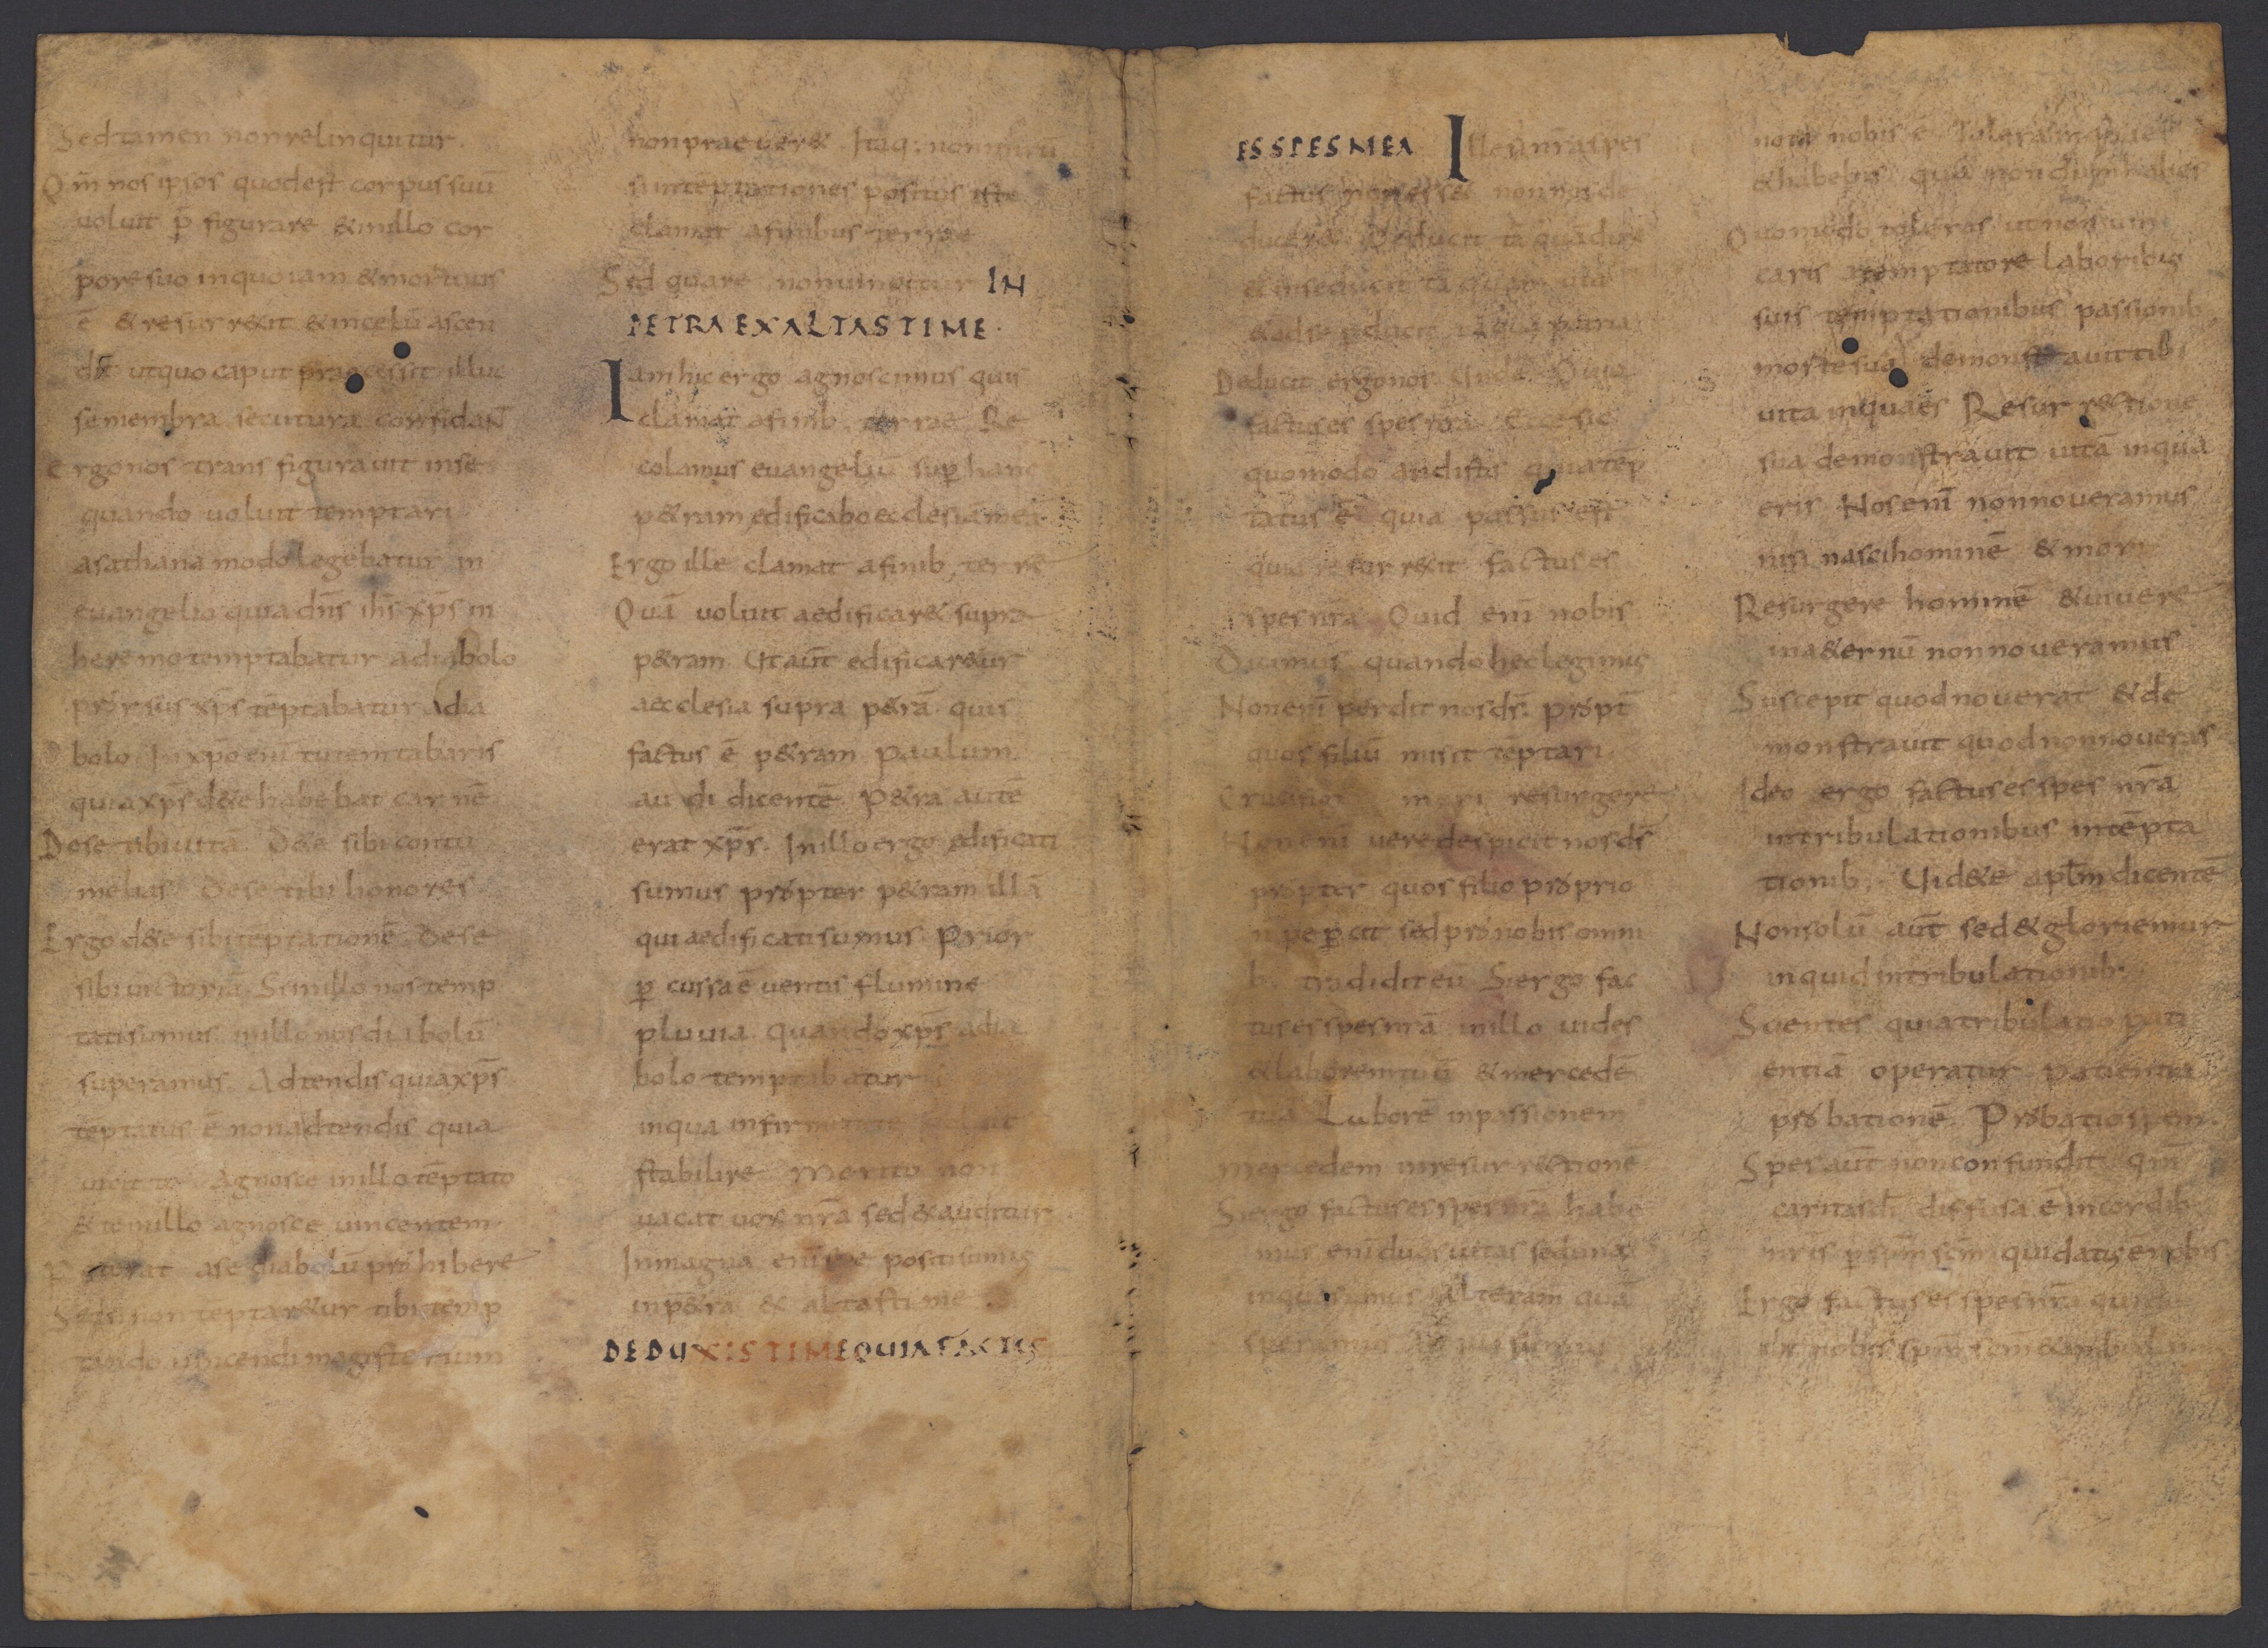 Sed tamen non relinquitur.
Qm̄ nos ipsos quod est corpus suū
uoluit p̄ figurare & in illo cor
pore suo in quo iam & mortuus
ē & resurrexit & in celū ascen
dit ut quo caput praecessit illuc
se membra secutura confidant
Ergo nos transfigurauit in se
quando uoluit temptari
a sathana modo legebatur in
euangelio quia dn̄s ih̄s xp̄s in
heremo temptabatur a diabolo
prorsus xp̄s tēptabatur a dia
bolo In xp̄o enī tu temtabaris
quia xp̄s de te habebat carnē
De se tibi uitā. De te sibi contu
melias De se tibi honores
Ergo de te sibi tēptationē de se
tibi uictoriā. Si in illo nos temp
tati sumus in illo nos diabolū
superamus. Adtendis quia xp̄s
tēptatus ē non adtendis quia
uicit Agnosce in illo tēptato
& te in illo agnosce uincentem
Poterat a se diabolū prohibere
Sed si non tēptaretur tibi temp
tando uincendi magisterium
non praeberet Itaq; non mirū
si in temptationes positus iste
clamat a finibus terrae
Sed quare non uincitur IN
PETRA EXALTASTI ME.
Iam hic ergo agnoscimus quis
clamat a finib; terrae Re
colamus euangeliū sup̄ hanc
p&ram edificabo ecclesiā meā
Ergo ille clamat a finib; terrē
Quā uoluit aedificar& supra
p&ram Ut aut̄ edificar&ur
aecclesia supra p&rā quis
factus ē p&ram Paulum
audi dicentē P&ra autē
erat xp̄s. In illo ergo edificati
sumus propter p&ram illā
qui aedificati sumus Prior
p̄cussa ē uentis flumine
pluuia quando xp̄s a dia
bolo temptabatur
in qua infirmitate
stabilire Merito non
uacat uox nr̄a sed exauditur
In magna enī spe positi sumus
in p&ra exaltasti me
DEDUXISTI ME QUIA FACTUS
ES SPES MEA Ille nr̄a spes
factus non ess& non nos de
ducer& Deducit tā quā dux
& in se ducit tā quam uia
& ad se p̄ducit tā quā patria
Deducit ergo nos Unde Quia
factus es spes nr̄a Ecce sic
quomodo audistis quia tēp
tatus ē quia passus est
quia resurrexit factus es
spes nr̄a Quid enī nobis
dicimus quando hec legimus
Non enī perdit nos dš. propt̄
quos filiū misit tēptari
Crucifigi mori resurgere
Non enī uere despicit nos dš
propter quos filio proprio
n̄ pepercit sed pro nobis omni
b; tradidit eū Si ergo fac
tus es spes nr̄ā in illo uides
& laborem tuū & mercedē
tuā Laborē in passionem
mercedem in resurrectionē
Si ergo factus es spes nr̄a habe
mus enī duas uitas sed unā
in qua sumus alteram quā
speramus In qua sumus
nota nobis ē Tolera
& habebis quā nondum habes
Quomodo toleras ut non uin
caris a temptatore Laboribus
suis temptationibus passionib;
morte sua demonstrauit tibi
uita in qua es Resurrectione
sua demonstrauit uitā in qua
eris Nos enī non noueramus
nisi nasci hominē & mori
Resurgere hominē & uiuere
in a&ernū non noueramus
Suscepit quod nouerat & de
monstrauit quod non noueras
Ideo ergo factus es spes nr̄a
in tribulationibus in tēpta
tionib; Uid&e apl̄m dicentē
Non solū aut̄ sed & gloriemur
inquid in tribulationib;
Scientes quia tribulatio pati
entiā operatur patientia
probationē Probatio spem
Spes aut̄ non confundit qm̄
caritas dī diffusa ē in cordib;
nr̄is p̄ spm̄ scm̄ qui datus ē nobis
Ergo factus es spes nr̄a qui de
dit nobis spm̄ scm̄ & ambulamus